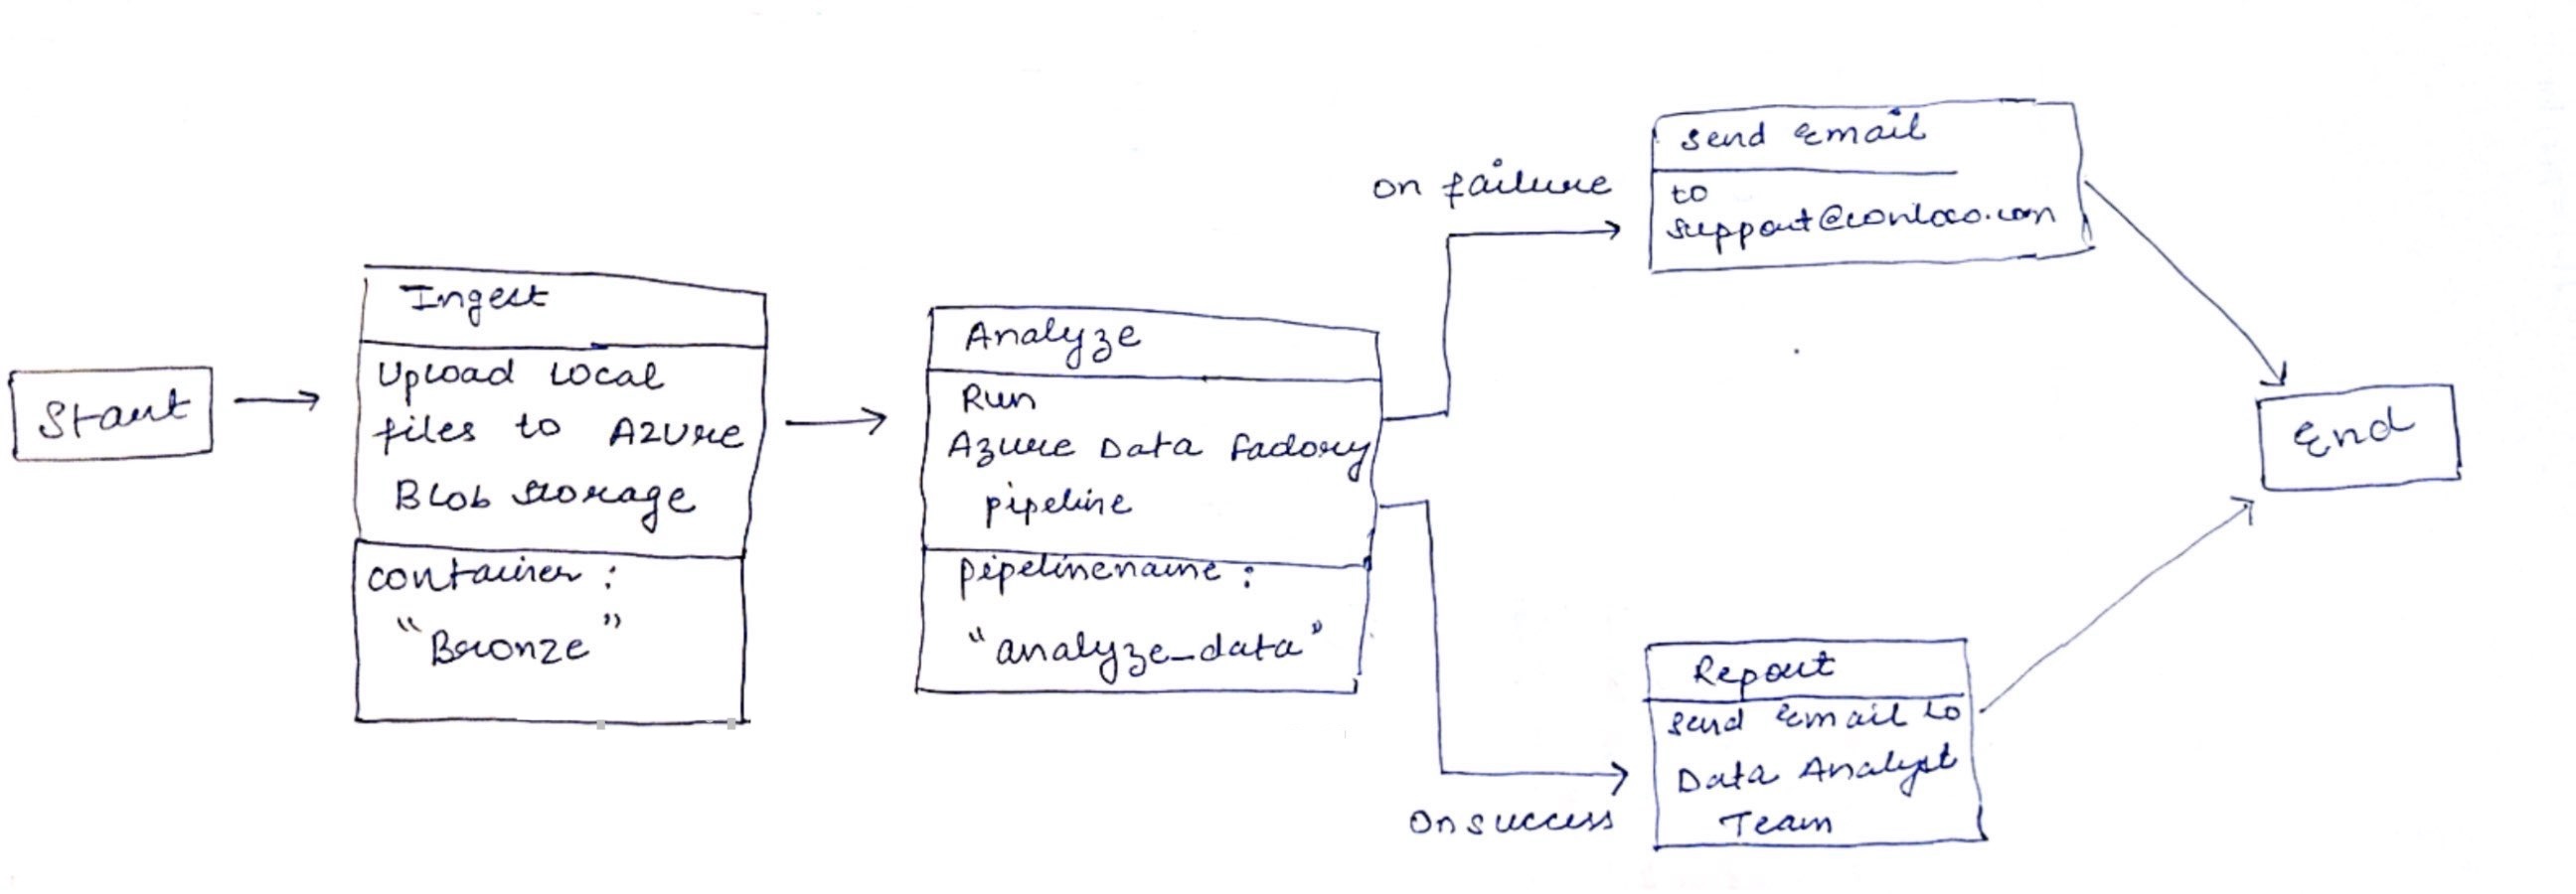 Start
Ingest
Upload Local
files to Azure
Blob Storage
container :
"Bronze"
Analyze
Run
Azure Data Factory
pipeline
pipelinename :
"analyze_data"
on failure
Send Email
to
On success
Report
Send Email to
Data Analyst
Team
End